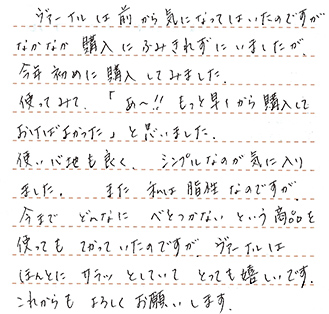 ヴァーナルは前から気になってはいたのですが
なかなか購入にふみきれずにいましたが、
今年初めに購入してみました。
使ってみて、「あ〜!!もっと早くから購入して
おけばよかった」と思いました。
使い心地も良く、シンプルなのが気に入り
ました。 また 私は脂性なのですが、
今まで どんなに べとつかない という商品を
使っても てかっていたのですが、ヴァーナルは
ほんとに サラッ としていて とっても嬉しいです。
これからも よろしく お願いします。